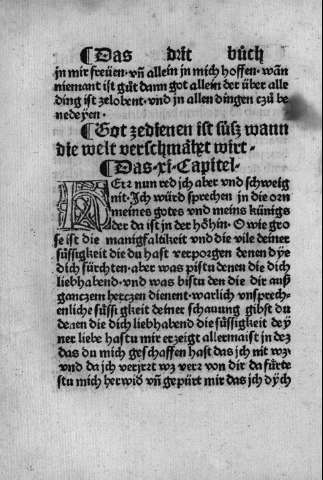 ¶Das drit bůch
jn mir freüen· vñ allein in mich hoffen· wañ
niemant ist gůt dann got allein der über alle
ding ist zelobent· vnd jn allen dingen czů be
nedeyen·
¶Got zedienen ist süsz wann
die welt verschmäxt wirt·
¶Das·xi·Capitel·
HErz nun red jch aber vnd schweig
nit· Jch würd sprechen jn die orn
meines gotes vnd meins künigs
der da ist jn der höhin· O wie gro
se ist die manigfaltikeit vnd die vile deiner
süssigkeit die du hast verporgen denen dye
dich fürchten· aber was pistu denen die dich
liebhabend· vnd was bistu den die dir ausz
ganczem herczen dienent· warlich vnsprech⸗
enliche süssigkeit deiner schauung gibst du
denen die dich liebhabend die süssigkeit dey
ner liebe hastu mir erzeigt allermaist jn dez
das du mich geschaffen hast das jch nit wz·
vnd da jch verjrrt wz verr von dir da fürte
stu mich herwid vñ gepürt mir das jch dych